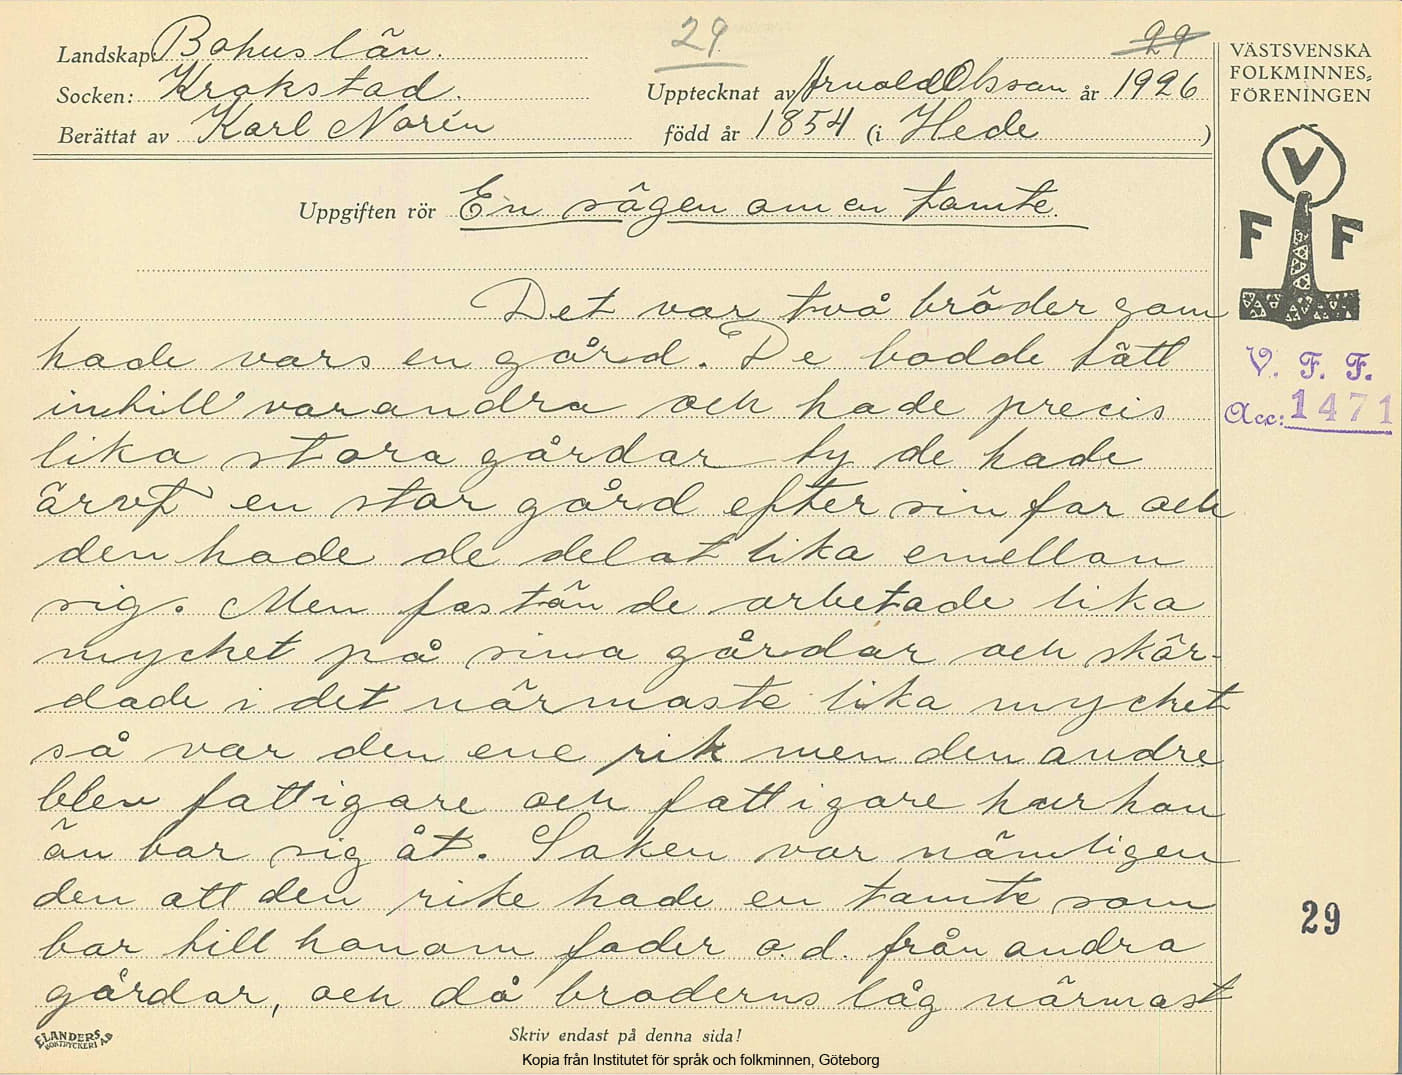 29
29
Landskap: Bohuslän.
Socken: Krokstad. Upptecknat av Arnold Olsson år 1926
Berättat av Karl Norén född år 1854 (i Hede )
VÄSTSVENSKA
FOLKMINNES-
FÖRENINGEN
V
F F
Uppgiften rör En sägen om en tomte.
V. F. F.
Acc: 1471
Det var två bröder som
hade vars en gård. De bodde tätt
intill varandra och hade precis
lika stora gårdar ty de hade
ärvt en stor gård efter sin far och
den hade de delat lika emellan
sig. Men fastän de arbetade lika
mycket på sina gårdar och skör-
dade i det närmaste lika mycket
så var den ene rik men den andre
blev fattigare och fattigare hur han
än bar sig åt. Saken var nämligen
den att den rike hade en tomte som
bar till honom foder o.d. från andra
gårdar, och då broderns låg närmast
29
ELANDERS
BOKTRYCKERI AB
Skriv endast på denna sida!
Kopia från Institutet för språk och folkminnen, Göteborg